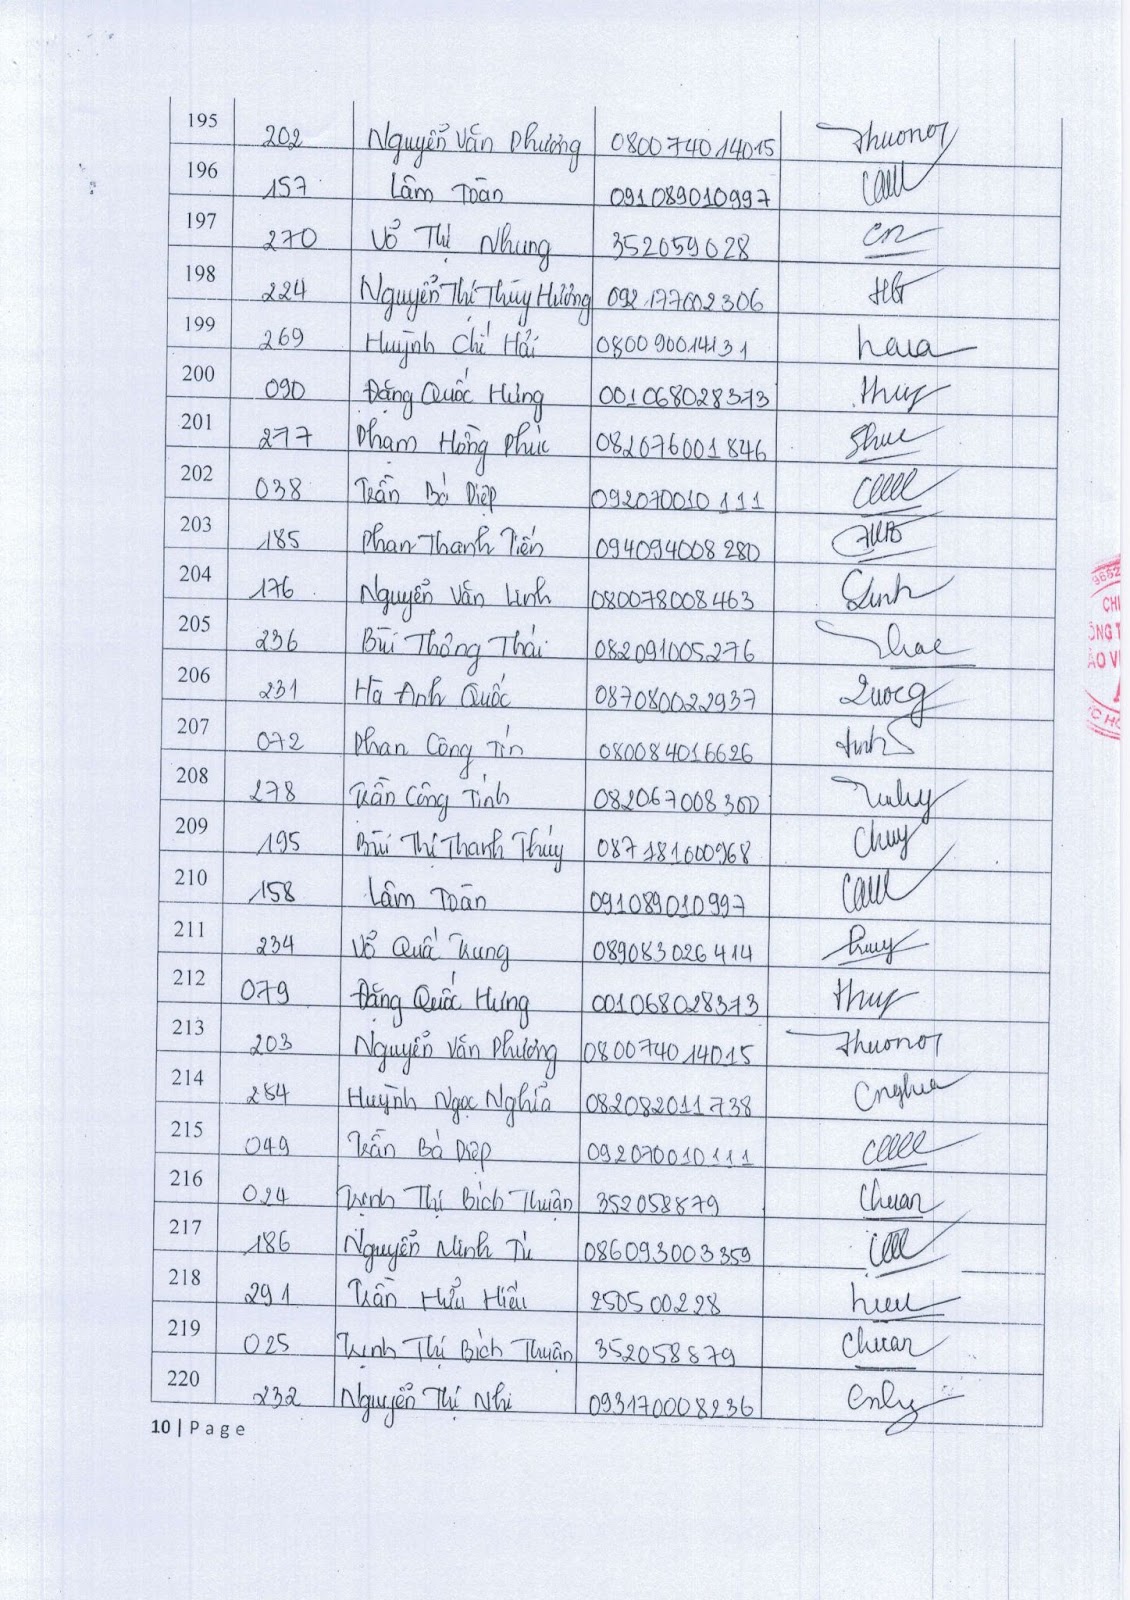 195 202 Nguyễn Văn Phương 080074014015 Phuong
196 157 Lâm Toàn 091089010997
197 270 Võ Thị Nhung 352059028
198 224 Nguyễn Thị Thùy Hương 092177002306
199 269 Huỳnh Chí Hải 080090014131
200 090 Đặng Quốc Hưng 001068028373
201 277 Phạm Hồng Phúc 082076001846
202 038 Trần Bá Diệp 092070010111
203 185 Phan Thanh Tiến 094094008280
204 176 Nguyễn Văn Linh 080078008463 Linh
205 236 Bùi Thông Thái 082091005276
206 231 Hà Anh Quốc 087080022937
207 072 Phan Công Tín 080084016626
208 278 Trần Công Tính 082067008300
209 195 Bùi Thị Thanh Thúy 087181000968
210 158 Lâm Toàn 091089010997
211 234 Võ Quốc Trung 089083026414
212 079 Đặng Quốc Hưng 001068028373
213 203 Nguyễn Văn Phương 080074014015 Phuong
214 284 Huỳnh Ngọc Nghĩa 082082011738
215 049 Trần Bá Diệp 092070010111
216 024 Trịnh Thị Bích Thuận 352058879
217 186 Nguyễn Minh Tú 086093003359
218 291 Trần Hữu Hiếu 250500228 hieu
219 025 Trịnh Thị Bích Thuận 352058879
220 232 Nguyễn Thị Nhi 093170008236
10 | Page